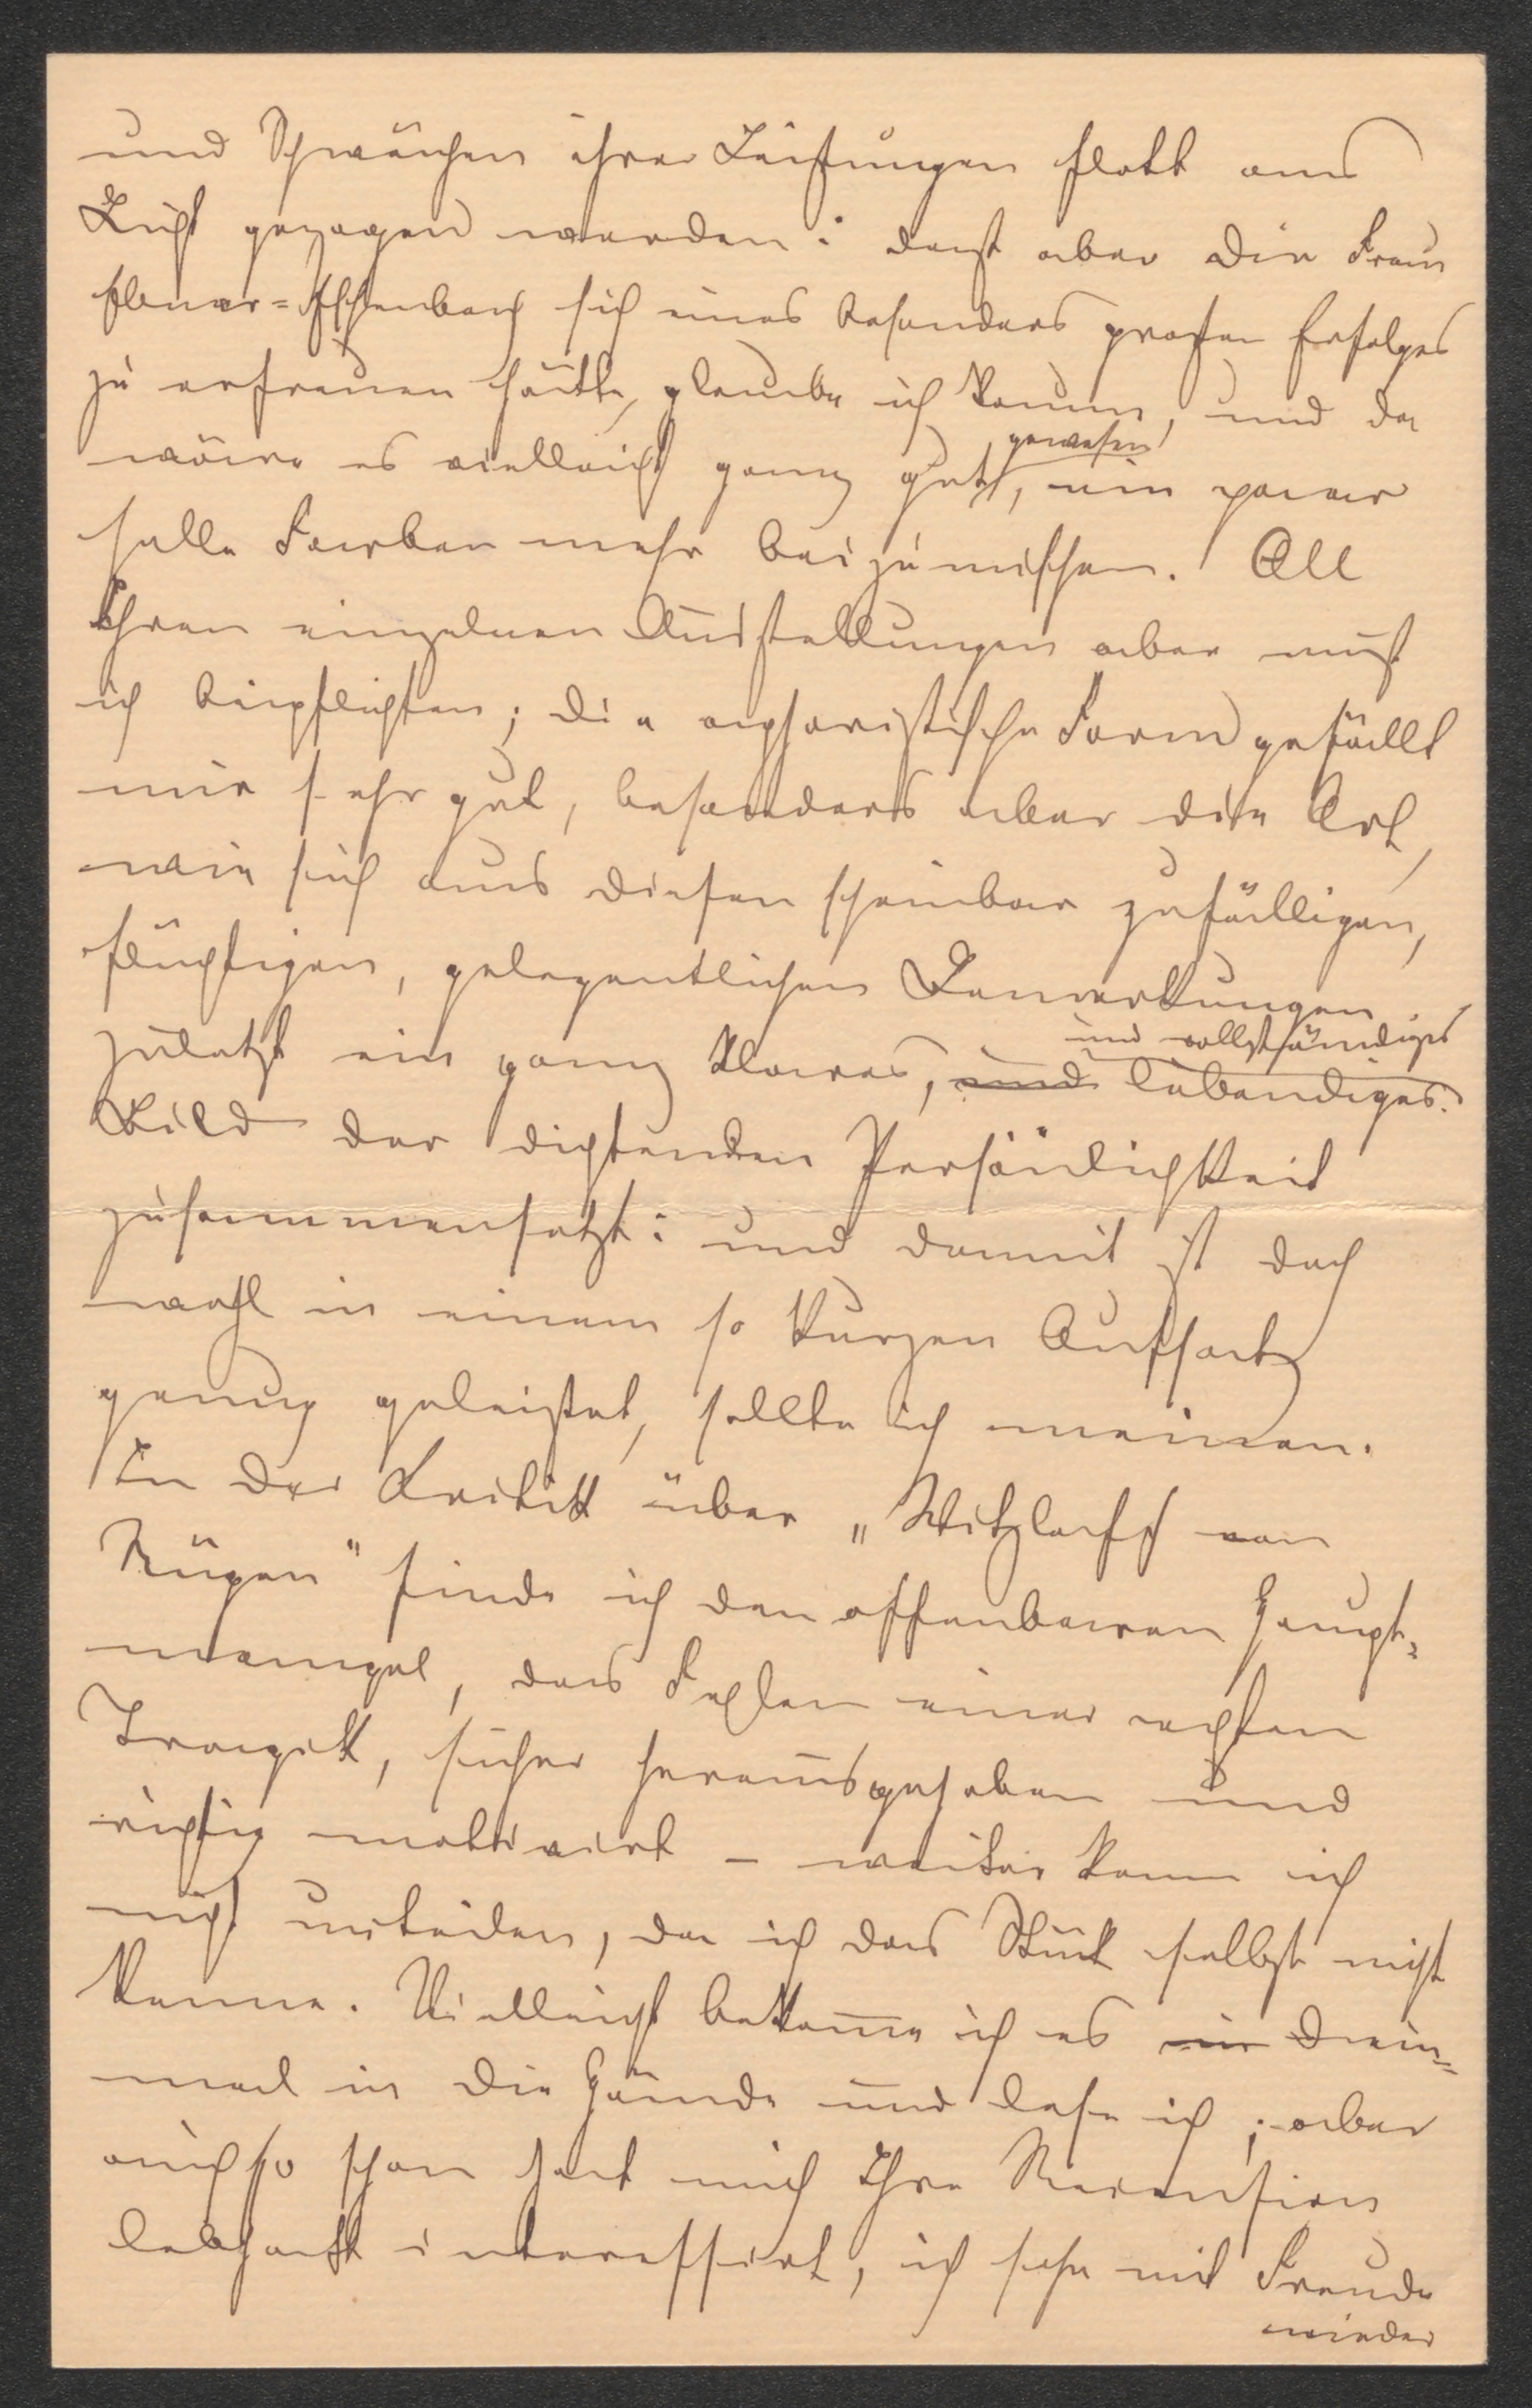 und Schwächen ihrer Leistungen flott ans
Licht gezogen werden: dass aber die Frau
Ebner-Eschenbach sich eines besonders großen Erfolges
zu erfreuen hätte, glaube ich kaum, und da
wäre es vielleicht ganz gut gewesen, ein paar
helle Farben mehr beizumischen. All
Ihren einzelnen Ausstellungen aber muß
ich beipflichten; die aphoristische Form gefällt
mir sehr gut, besonders aber die Art,
wie sich aus diesen scheinbar zufälligen,
flüchtigen, gelegentlichen Bemerkungen
zuletzt ein ganz klares, und lebendiges und vollständiges
Bild der dichtenden Persönlichkeit
zusammensetzt: und damit ist doch
wohl in einem so kurzen Aufsatz
genug geleistet, sollte ich meinen.
In der Kritik über „Witzlaff von
Rügen" finde ich den offenbaren Haupt-
mangel, das Fehlen einer echten
Tragik, sicher herausgehoben und
richtig motivirt – weiter kann ich
nicht urteilen, da ich das Stück selbst nicht
kenne. Vielleicht bekomme ich es
mal in die Hände und lese ich; aber
auch so schon hat mich Ihre Recension
lebhaft interessirt, ich sehe mit Freude
wieder